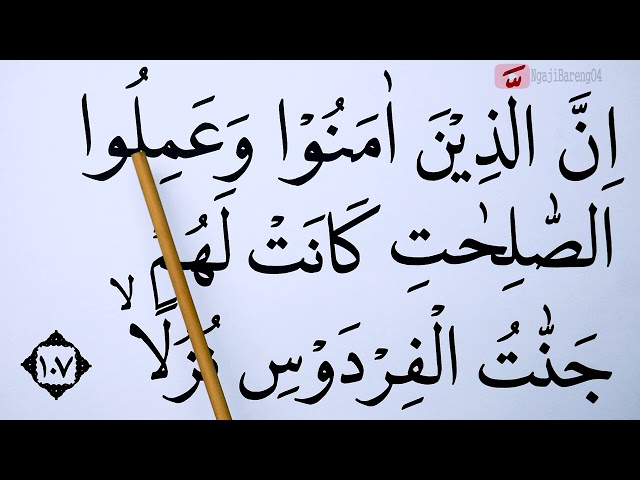 NgajiBareng04
اِنَّ الَّذِيْنَ اٰمَنُوْا وَعَمِلُوا
الصّٰلِحٰتِ كَانَتْ لَهُمْ
جَنّٰتُ الْفِرْدَوْسِ نُزُلًا ۙ ١٠٧